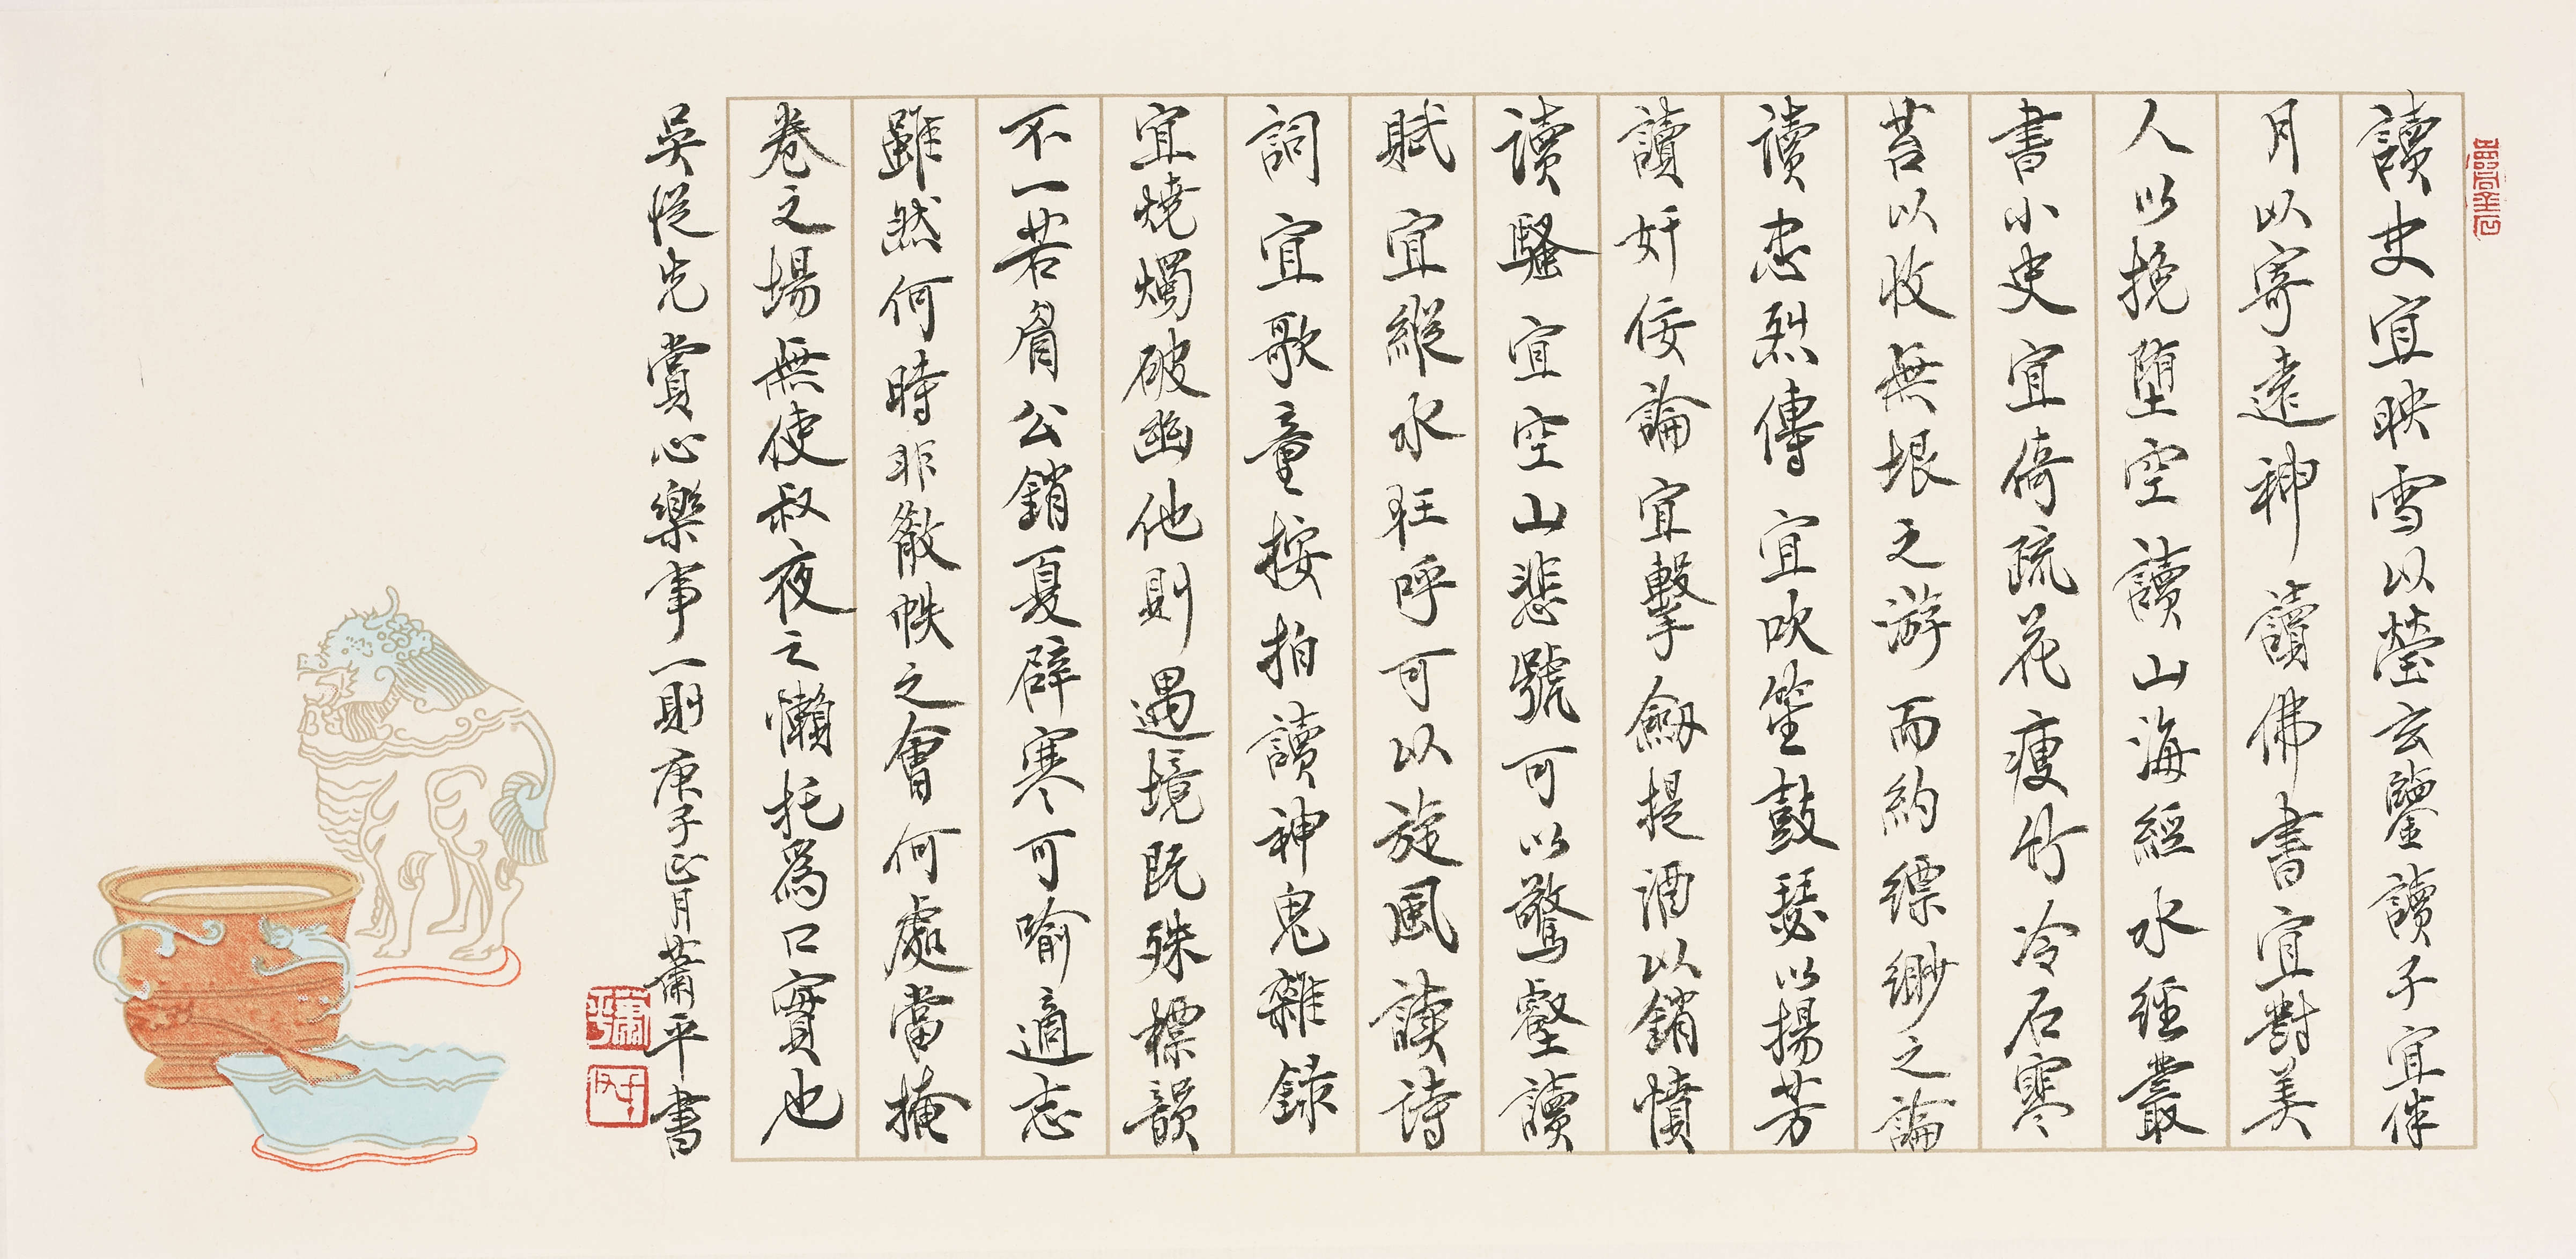 讀史宜映雪以瑩玄鑒讀子宜伴
月以寄遠神讀佛書宜對美
人以挽墮空讀山海經水經叢
書小史宜倚疏花瘦竹冷石寒
苔以收無垠之游而約缥緲之論
读忠烈傳宜吹笙鼓瑟以揚芳
讀奸佞論宜擊劒提酒以銷憤
讀騷宜空山悲號可以驚壑讀
賦宜縱水狂呼可以旋風讀詩
詞宜歌童按拍讀神鬼雜錄
宜燒燭破幽他則遇境既殊標韻
不一若眉公銷夏辟寒可喻適志
雖然何時非散帙之會何處當掩
卷之場無使叔夜之懶托爲口實也
吳從先賞心樂事一則庚子正月蕭平書
蕭平